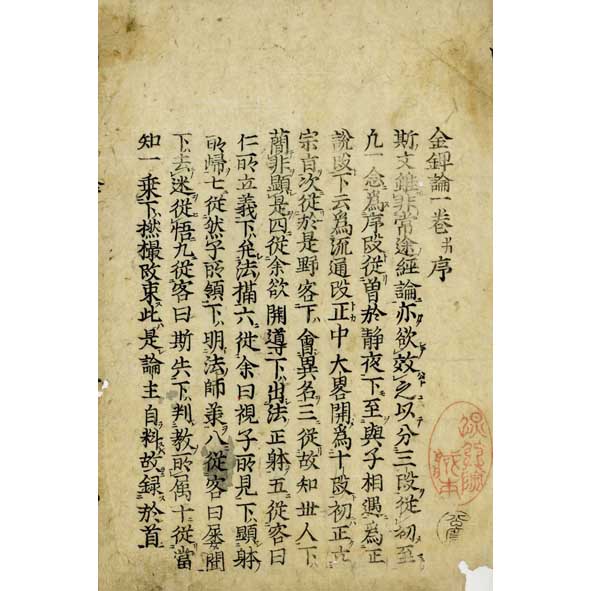 金錍論一卷 并序
斯文雖非常途經論亦欲效之以分三段從初至
凢一念為序段從曽於静夜下至與子相遇為正
說段下云為流通段正中大畧開為十段初正立
宗㫖次從於是野客下會異名三從故知世人下
簡非顯是四從余欲開導下出法正躰五從客曰
仁所立義下允法攝六從余曰視子所見下顯躰
所歸七從然子所領下明法師兼八從客曰屡聞
下去迷從悟九從客曰斯失下判教所属十從當
知一乗下撚撮改束此是論主自料故録於首